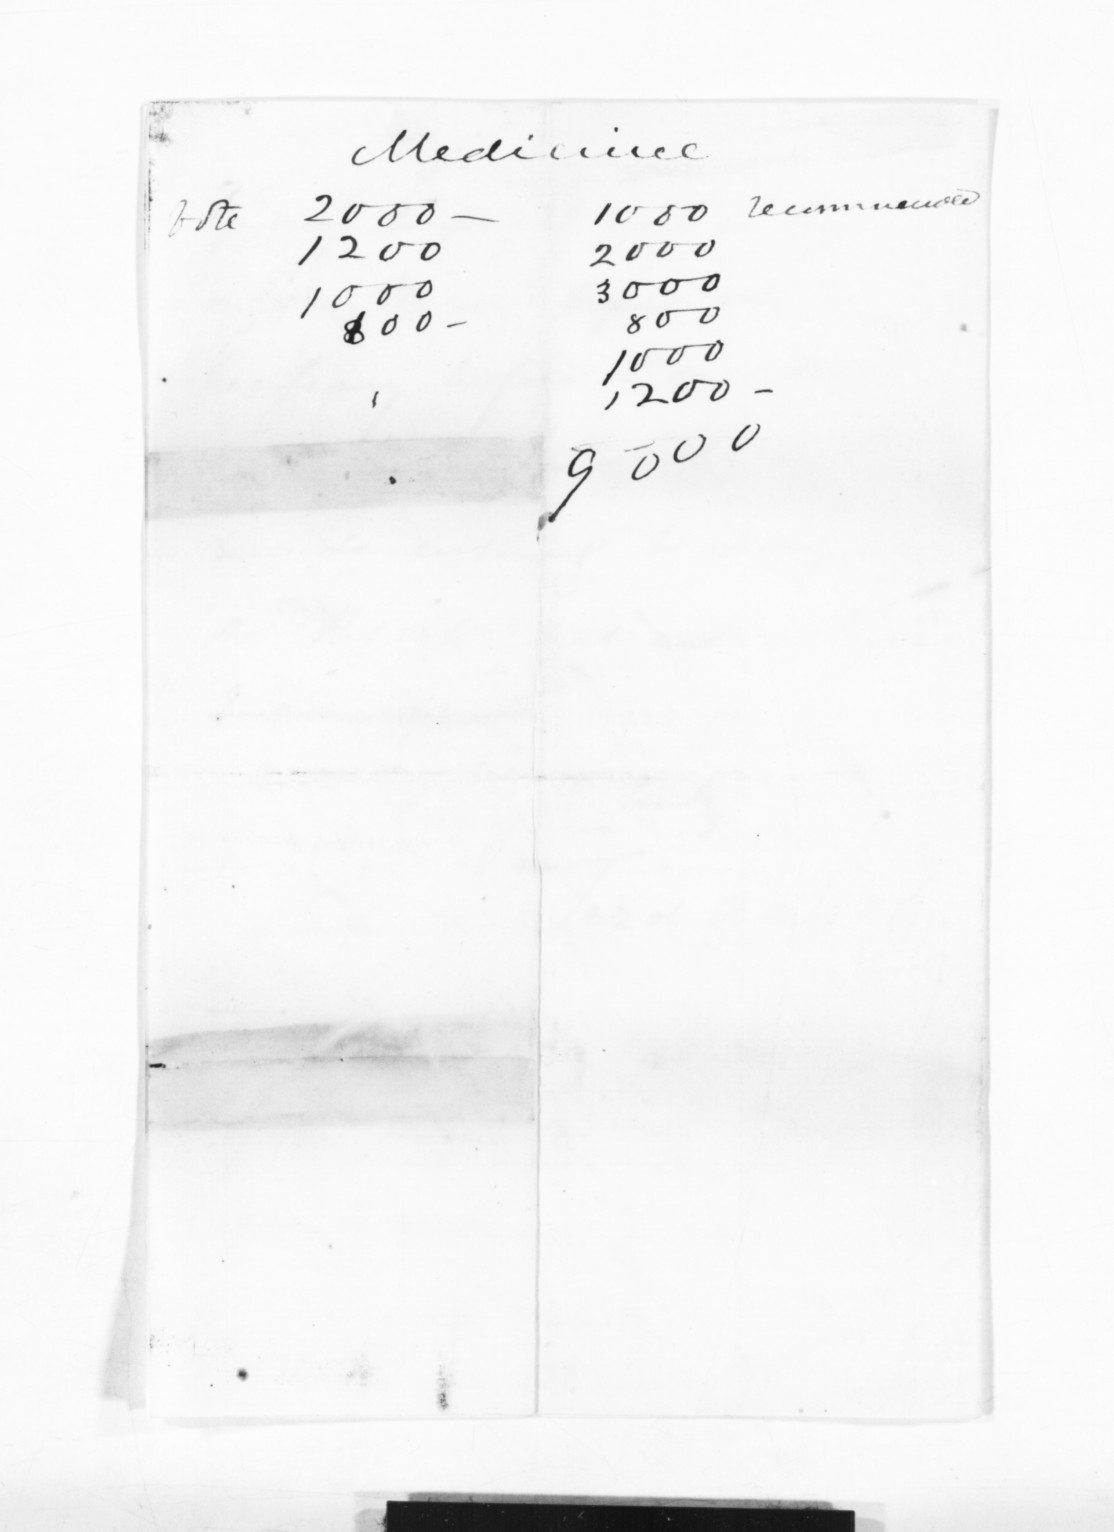 Medicine
vote 2000 — 1000 recommended
1200 2000
1000 3000
800 – 800
1000
1200 –
9000